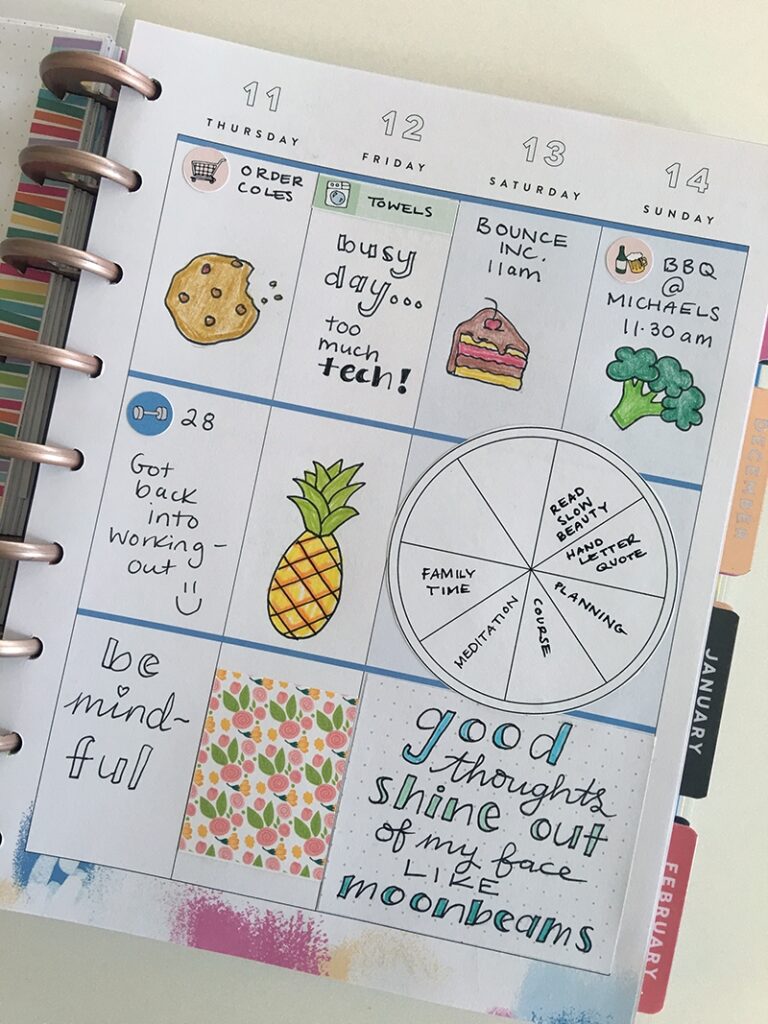 11
THURSDAY
12
FRIDAY
13
SATURDAY
14
SUNDAY
ORDER
COLES
TOWELS
busy
day...
too
much
tech!
BOUNCE
INC.
11am
BBQ
@
MICHAELS
11.30am
28
Got
back
into
working-
out
READ
SLOW
BEAUTY
HAND
LETTER
QUOTE
PLANNING
COURSE
MEDITATION
FAMILY
TIME
be
mind-
ful
good
thoughts
shine out
of my face
LIKE
moonbeams
DECEMBER
JANUARY
FEBRUARY